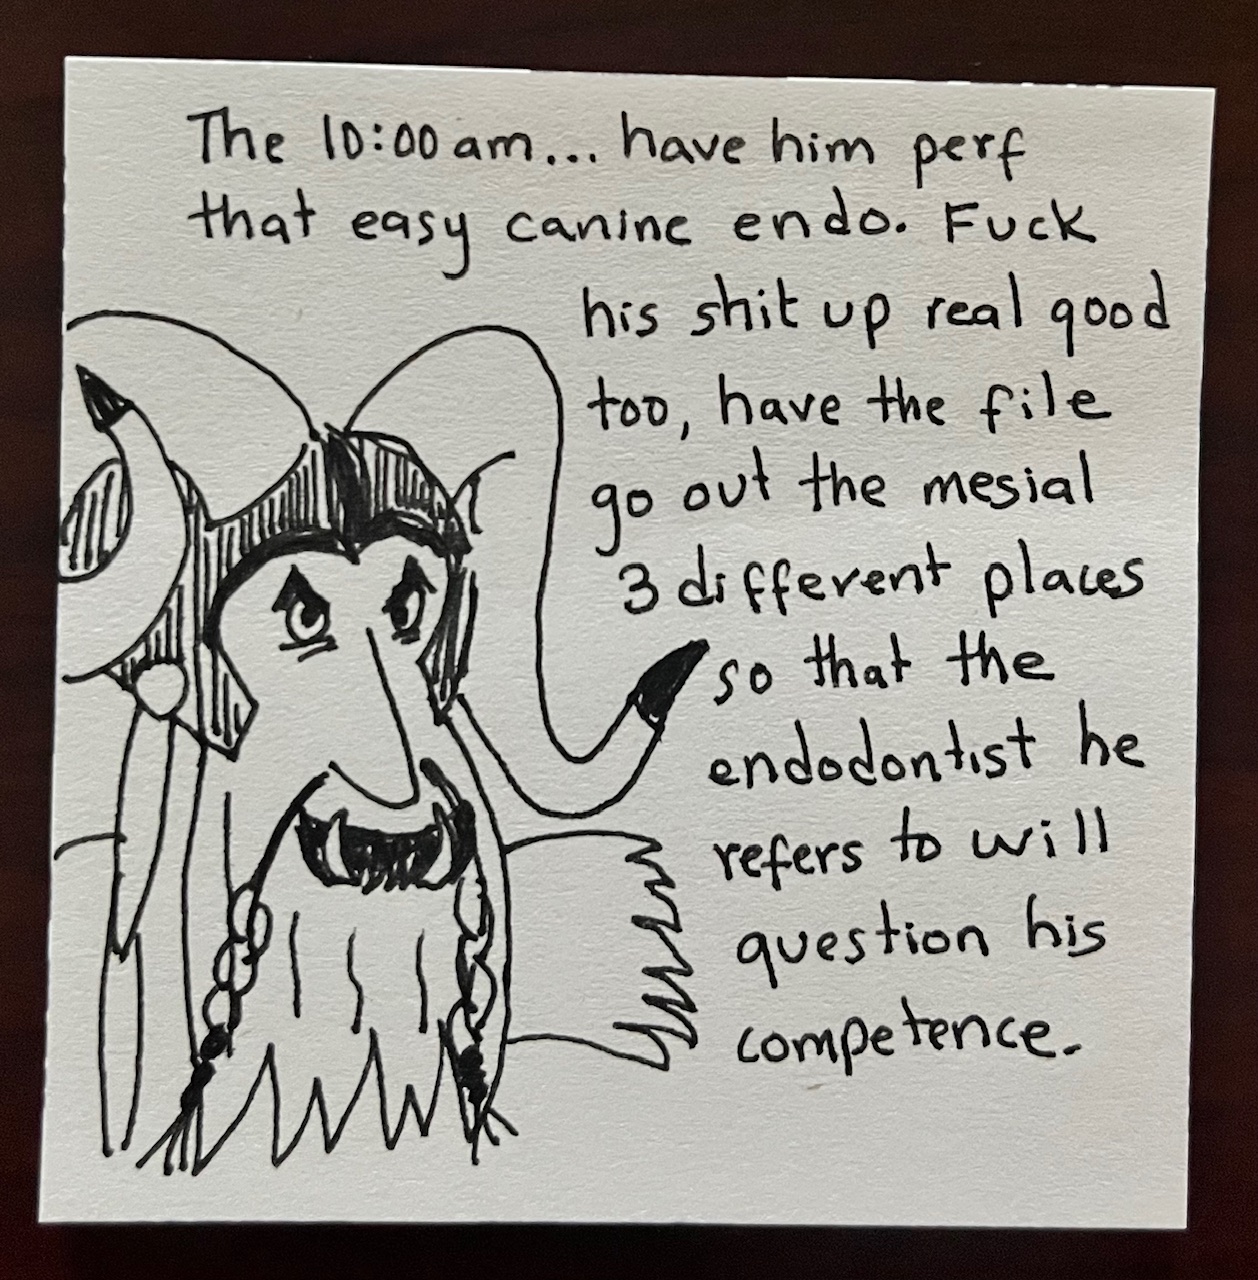 The 10:00 am... have him perf
that easy canine endo. Fuck
his shit up real good
too, have the file
go out the mesial
3 different places
so that the
endodontist he
refers to will
question his
competence.